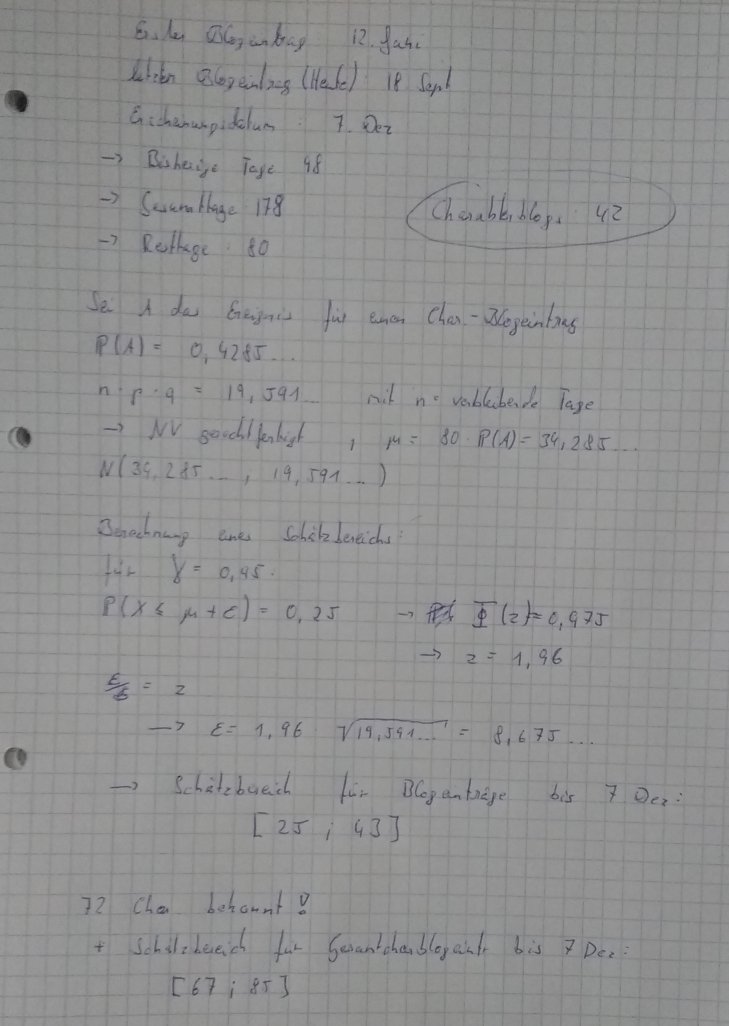 Erster Blogeintrag 12. Juni
letzter Blogeintrag (Heute) 18 Sept
Erscheinungsdatum : 7. Dez
→ Bisherige Tage 98
→ Gesamttage 178
→ Resttage : 80
Charakterblogs : 42
Sei A das Ereignis für einen Char.-Blogeintrag
P(A) = 0,4285...
n · p · q = 19,591... mit n = verbleibende Tage
→ NV gerechtfertigt , μ = 80 · P(A) = 34,285...
N(34,285..., 19,591...)
Berechnung eines Schätzbereichs:
für γ = 0,95.
P(X ≤ μ + ε) = 0,25 → Φ(z) = 0,975
→ z = 1,96
ε/σ = z
→ ε = 1,96 √19,591... = 8,675...
→ Schätzbereich für Blogeinträge bis 7 Dez:
[25 ; 43]
72 Char bekannt !
+ Schätzbereich für Gesamtcharblogeintr bis 7 Dez:
[67 ; 85]